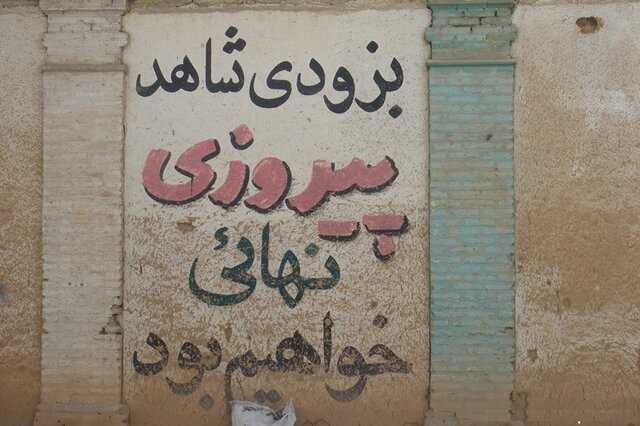 بزودی شاهد
پیروزی
نهائی
خواهیم بود